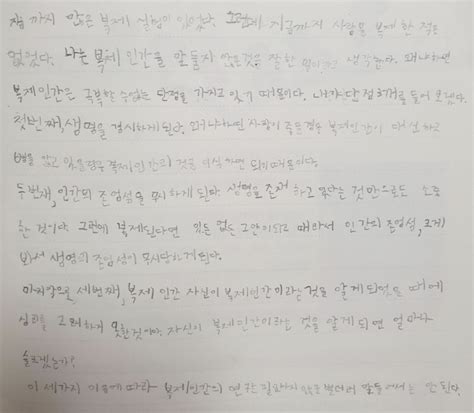 지금까지 많은 복제 실험이 있었다. 그런데 지금까지 사람을 복제한 적은
없었다. 나는 복제 인간을 만들지 않은것은 잘한 일이라고 생각한다. 왜냐하면
복제인간은 극복할 수없는 단점을 가지고 있기 때문이다. 내가 단점 3개를 들어 보겠다.
첫번째, 생명을 경시하게된다. 왜냐하면 사람이 죽는경우 복제인간이 대신 하고
병을 앓고 있을경우 복제인간의 것을 이식하면 되기때문이다.
두번째, 인간의 존엄성을 무시하게 된다. 생명은 존재하고 있다는 것만으로도 소중
한 것이다. 그런데 복제된다면 있든 없든 그만이되고 따라서 인간의 존엄성, 크게
봐서 생명의 존엄성이 무시당하게 된다.
마지막으로 세번째, 복제 인간 자신이 복제인간이라는 것을 알게되었을 때에
심리를 고려하지 못한것이다. 자신이 복제인간이라는 것을 알게 되면 얼마나
슬프겠는가?
이 세가지 이유에 따라 복제인간의 연구는 필요하지 않을 뿐더러 만들어서는 안 된다.